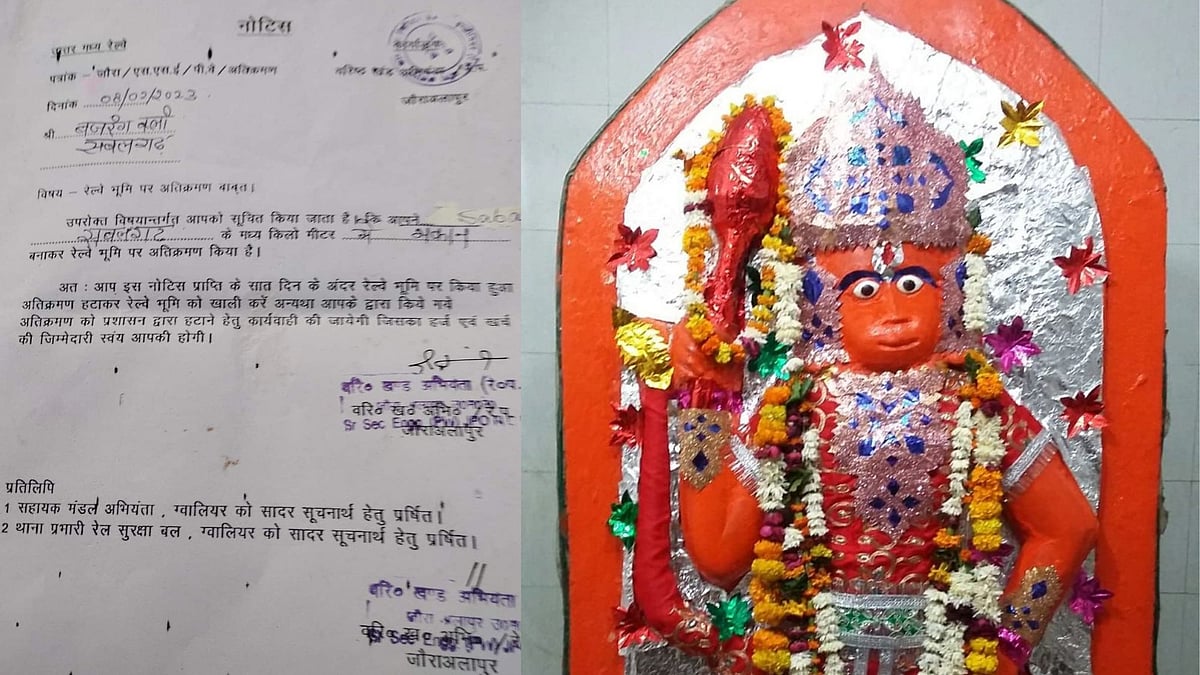 नोटिस
उत्तर मध्य रेल्वे
पत्रांक – जौरा / एस.एस.ई / पी.वे / अतिक्रमण
वरिष्ठ खंड अभियंता
जौराअलापुर
दिनांक 08/02/2023
श्री बजरंग बली
सबलगढ़
विषय – रेल्वे भूमि पर अतिक्रमण बाबत।
उपरोक्त विषयान्तर्गत आपको सूचित किया जाता है कि आपने Saba
सबलगढ़ के मध्य किलो मीटर में मकान
बनाकर रेल्वे भूमि पर अतिक्रमण किया है।
अत : आप इस नोटिस प्राप्ति के सात दिन के अंदर रेल्वे भूमि पर किया हुआ
अतिक्रमण हटाकर रेल्वे भूमि को खाली करें अन्यथा आपके द्वारा किये गये
अतिक्रमण को प्रशासन द्वारा हटाने हेतु कार्यवाही की जायेगी जिसका हर्ज एवं खर्च
की जिम्मेदारी स्वंय आपकी होगी।
वरि० खण्ड अभियंता (र०प.
वरि० ख० अभि० / र.प
Sr Sec Engg
जौराअलापुर
प्रतिलिपि
1 सहायक मंडल अभियंता , ग्वालियर को सादर सूचनार्थ हेतु प्रर्षित।
2 थाना प्रभारी रेल सुरक्षा बल , ग्वालियर को सादर सूचनार्थ हेतु प्रर्षित।
वरि० खण्ड अभियंता
Sr Sec Engg
जौराअलापुर